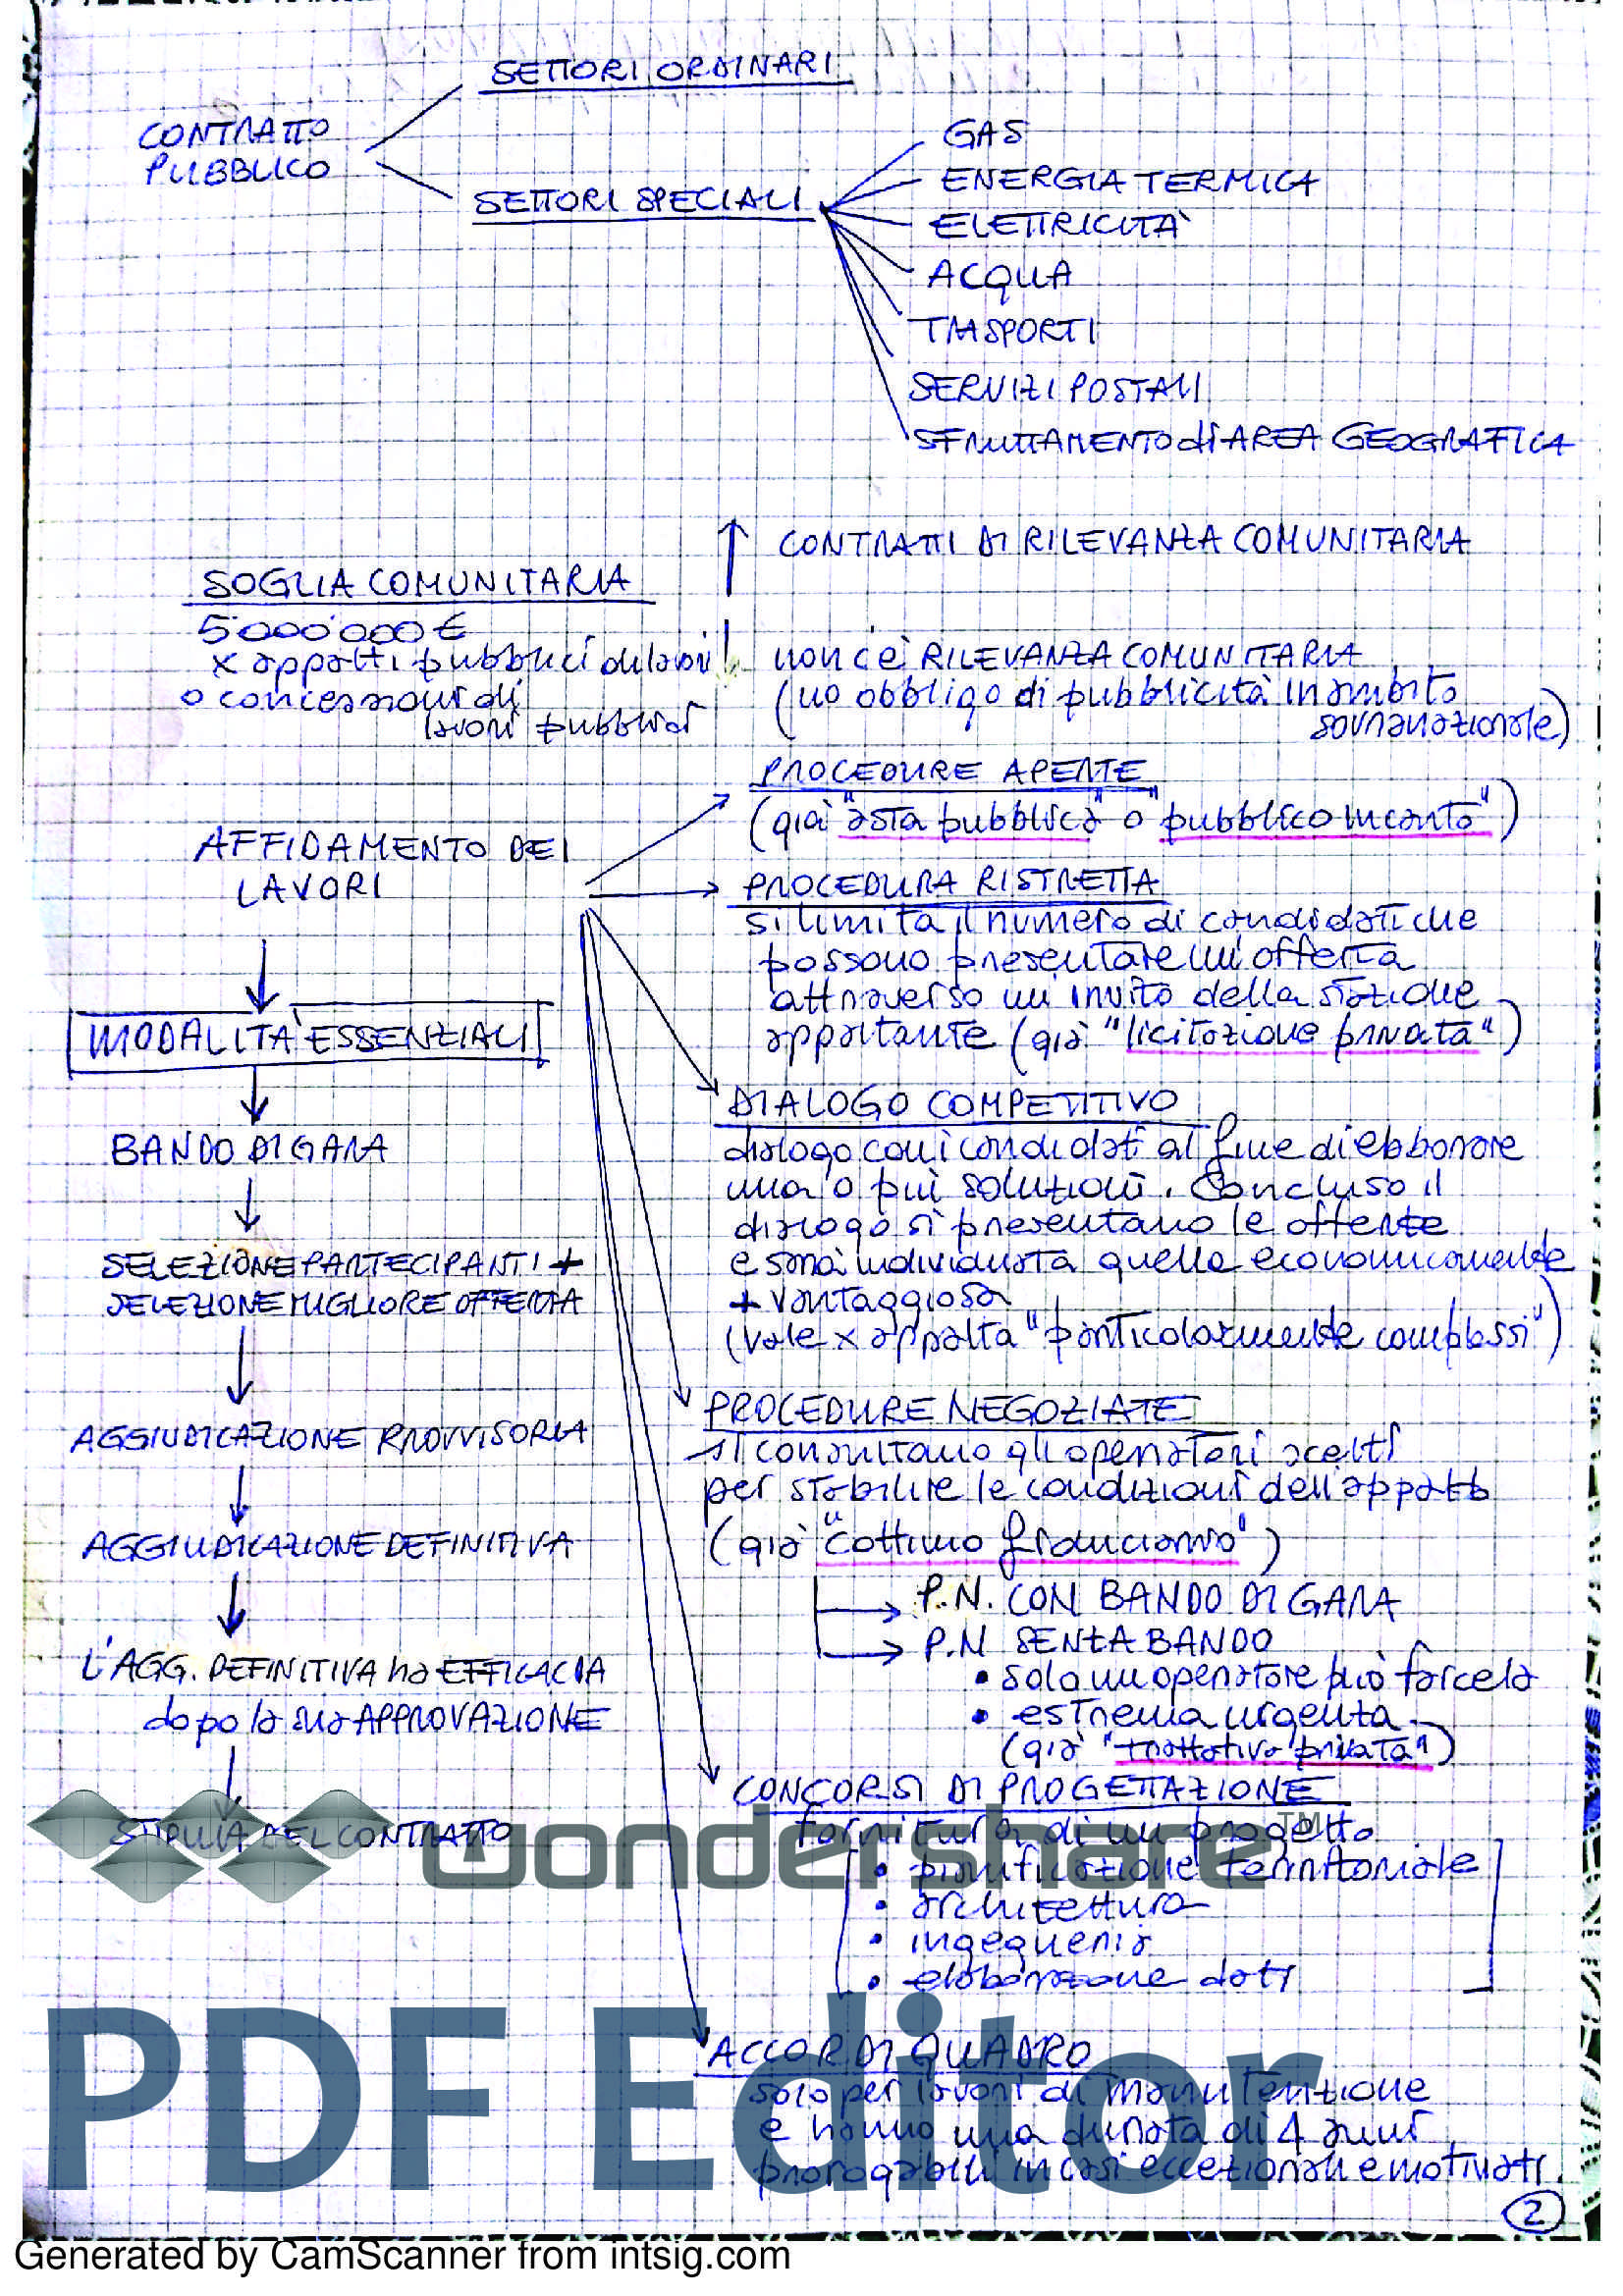 SETTORI ORDINARI
CONTRATTO
PUBBLICO
SETTORI SPECIALI
GAS
ENERGIA TERMICA
ELETTRICITÀ
ACQUA
TRASPORTI
SERVIZI POSTALI
SFRUTTAMENTO di AREA GEOGRAFICA
CONTRATTI DI RILEVANZA COMUNITARIA
SOGLIA COMUNITARIA
5'000'000 €
x appalti pubblici di lavori
o concessioni di
lavori pubblici
non c'è RILEVANZA COMUNITARIA
(no obbligo di pubblicità in ambito
sovranazionale)
AFFIDAMENTO DEI
LAVORI
MODALITÀ ESSENZIALI
BANDO DI GARA
SELEZIONE PARTECIPANTI +
SELEZIONE MIGLIORE OFFERTA
AGGIUDICAZIONE PROVVISORIA
AGGIUDICAZIONE DEFINITIVA
L'AGG. DEFINITIVA ha EFFICACIA
dopo la sua APPROVAZIONE
STIPULA DEL CONTRATTO
PROCEDURE APERTE
(già "asta pubblica" o "pubblico incanto")
PROCEDURA RISTRETTA
si limita il numero di candidati che
possono presentare un'offerta
attraverso un invito della stazione
appaltante (già "licitazione privata")
DIALOGO COMPETITIVO
dialogo con i candidati al fine di elaborare
una o più soluzioni. Concluso il
dialogo si presentano le offerte
e sarà individuata quella economicamente
+ vantaggiosa
(vale x appalta "particolarmente complessi")
PROCEDURE NEGOZIATE
si consultano gli operatori scelti
per stabilire le condizioni dell'appalto
(già "cottimo fiduciario")
P.N. CON BANDO DI GARA
P.N SENZA BANDO
• solo un operatore può farcela
• estrema urgenza
(già "trattativa privata")
CONCORSI DI PROGETTAZIONE
fornitura di un progetto
• pianificazione territoriale
• architettura
• ingegneria
• elaborazione dati
ACCORDI QUADRO
solo per lavori di manutenzione
e hanno una durata di 4 anni
prorogabili in casi eccezionali e motivati.
2
wondershare™
PDF Editor
Generated by CamScanner from intsig.com